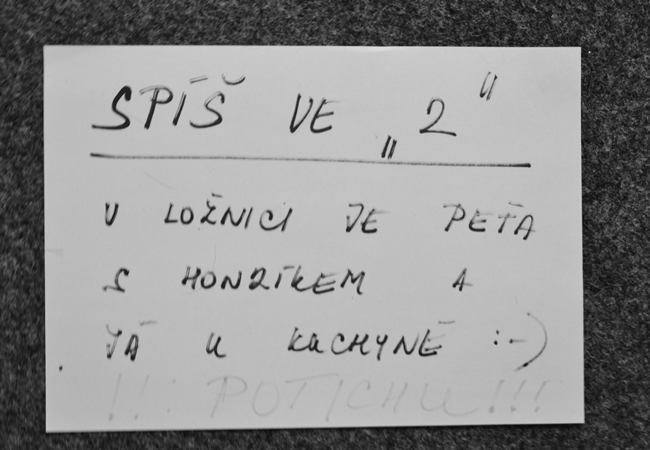 SPÍŠ VE „2"
V LOŽNICI JE PEŤA
S HONZÍKEM A
JÁ U KUCHYNĚ :-)
!!! POTICHU!!!